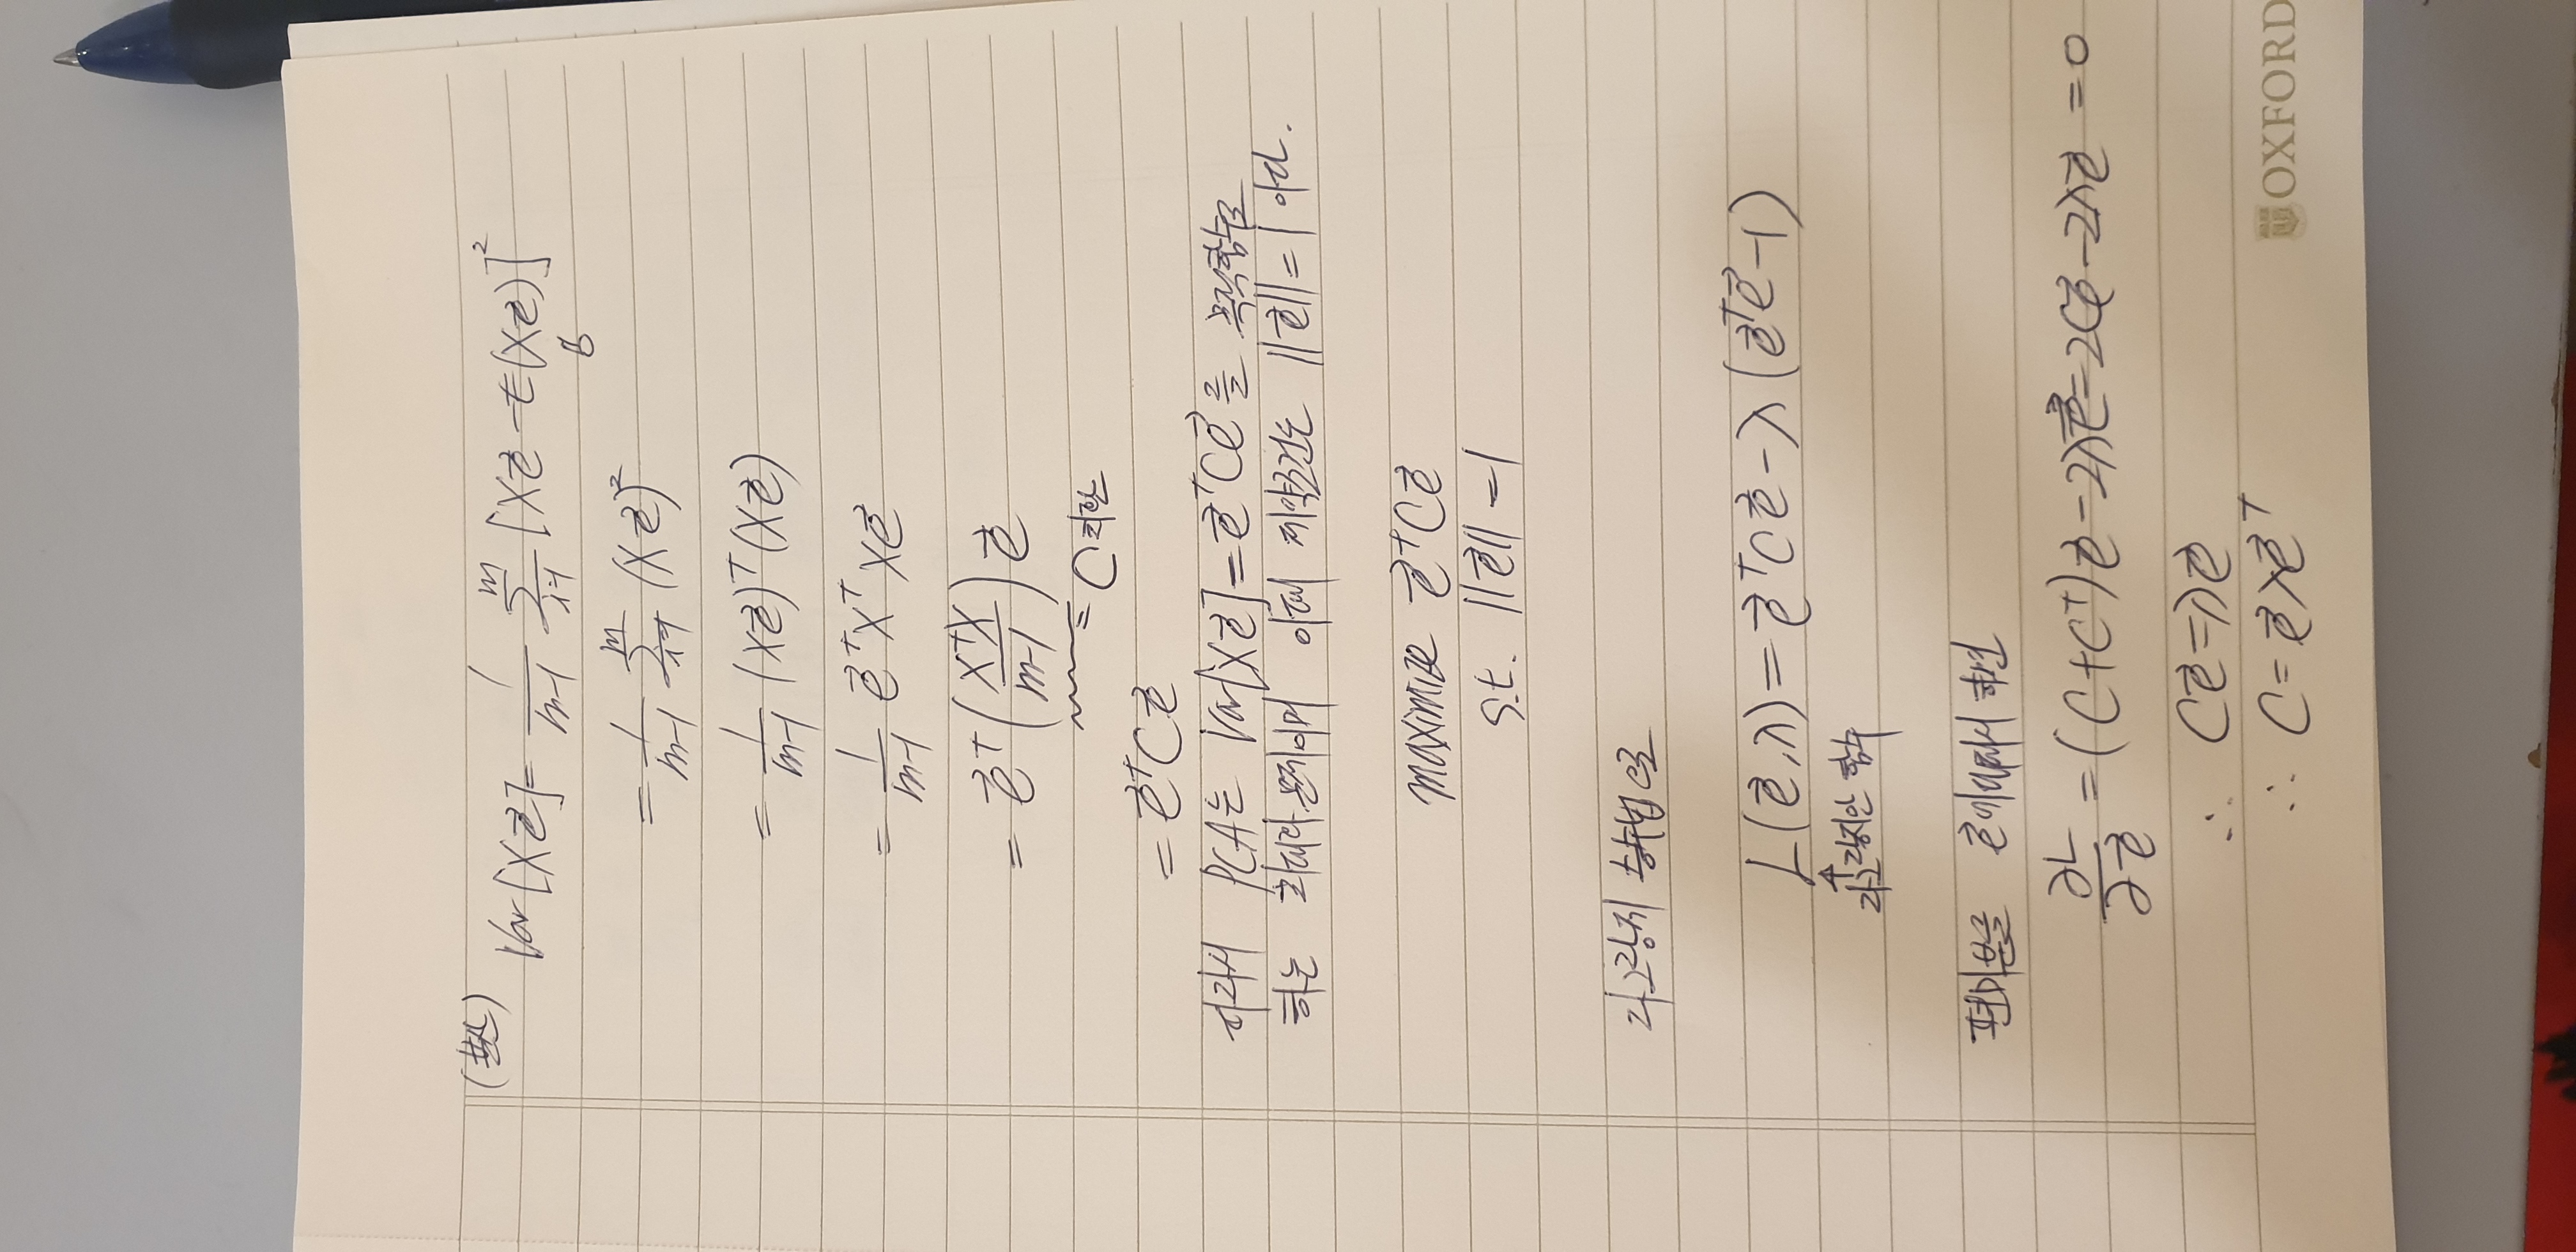 (분산) Var[Xe⃗]= 1/m-1 Σ i=1 m [Xe⃗ - E(Xe⃗)]²
0
= 1/m-1 Σ i=1 m (Xe⃗)²
= 1/m-1 (Xe⃗)ᵀ(Xe⃗)
= 1/m-1 e⃗ᵀXᵀXe⃗
= e⃗ᵀ(XᵀX/m-1)e⃗
= C 치환
= e⃗ᵀCe⃗
따라서 PCA는 Var[Xe⃗]=e⃗ᵀCe⃗를 목적함수로
하는 최대화 문제이며 이때 제약조건는 ||e⃗||=1 이다.
maximize e⃗ᵀCe⃗
s.t. ||e⃗||=1
라그랑지 승수법으로
L(e⃗,λ)=e⃗ᵀCe⃗-λ(e⃗ᵀe⃗-1)
↑
라그랑지안 함수
편미분을 e⃗에대해서 하면
∂L/∂e⃗ =(C+Cᵀ)e⃗-2λe⃗=2Ce⃗-2λe⃗ =0
∴ Ce⃗=λe⃗
∴ C=e⃗λe⃗ᵀ
OXFORD